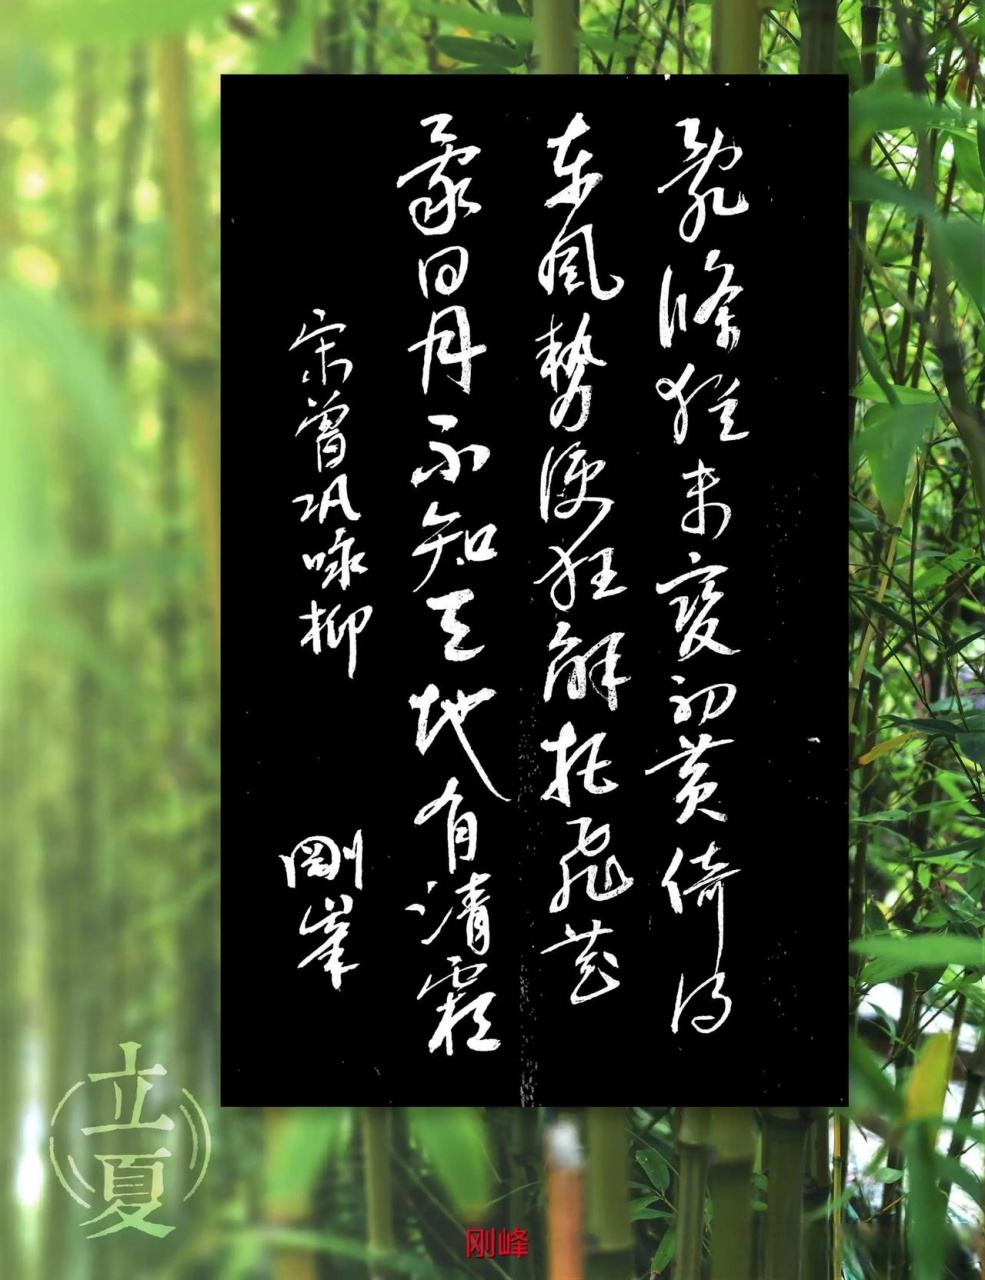 亂條猶未變初黄倚得
东風勢便狂解把飛花
蒙日月不知天地有清霜
宋曾巩咏柳
剛峯
立夏
刚峰